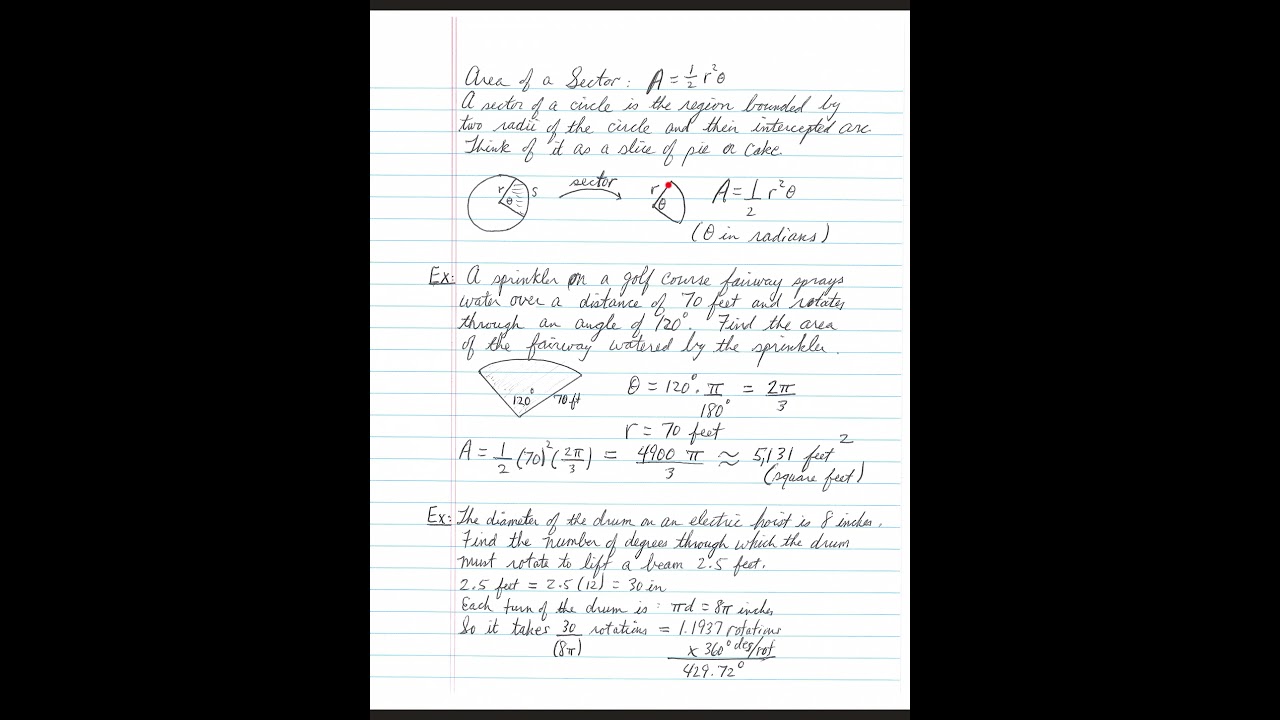 Area of a Sector: A = 1/2 r²θ
A sector of a circle is the region bounded by
two radii of the circle and their intercepted arc.
Think of it as a slice of pie or cake.
r θ s sector r θ A = 1/2 r²θ
(θ in radians)
Ex: A sprinkler on a golf course fairway sprays
water over a distance of 70 feet and rotates
through an angle of 120°. Find the area
of the fairway watered by the sprinkler.
120° 70 ft θ = 120° · π/180° = 2π/3
r = 70 feet
A = 1/2 (70)² (2π/3) = 4900 π/3 ≈ 5,131 feet²
(square feet)
Ex: The diameter of the drum on an electric hoist is 8 inches.
Find the number of degrees through which the drum
must rotate to lift a beam 2.5 feet.
2.5 feet = 2.5 (12) = 30 in
Each turn of the drum is: πd = 8π inches
So it takes 30/(8π) rotations = 1.1937 rotations
x 360° deg/rot
429.72°